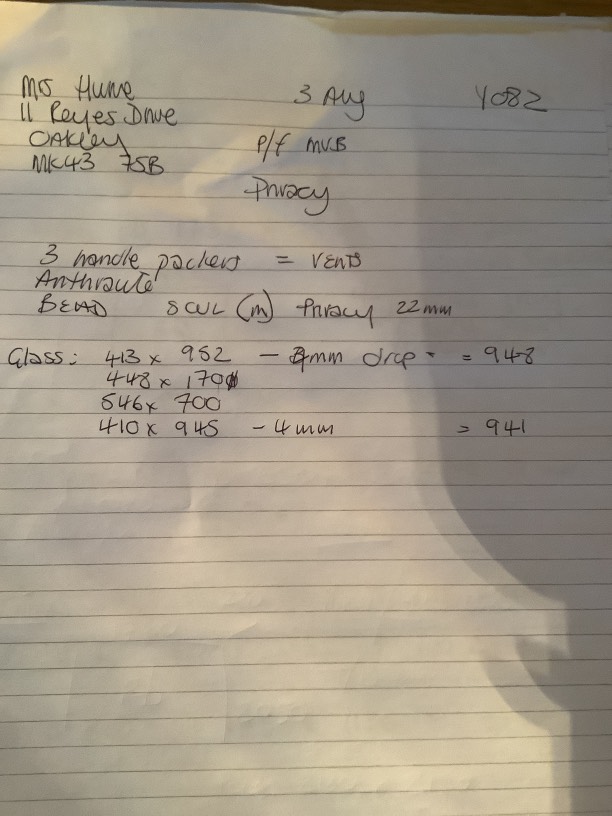 Mrs Hume 3 Aug Y082
11 Reyes Drive
Oakley
P/f MVB
MK43 7SB
Privacy
3 handle packers = VENTS
Anthracite
BEAD SCUL (m) Privacy 22mm
Glass: 413 x 952 - 4mm drop = 948
448 x 170
546 x 700
410 x 945 - 4mm = 941